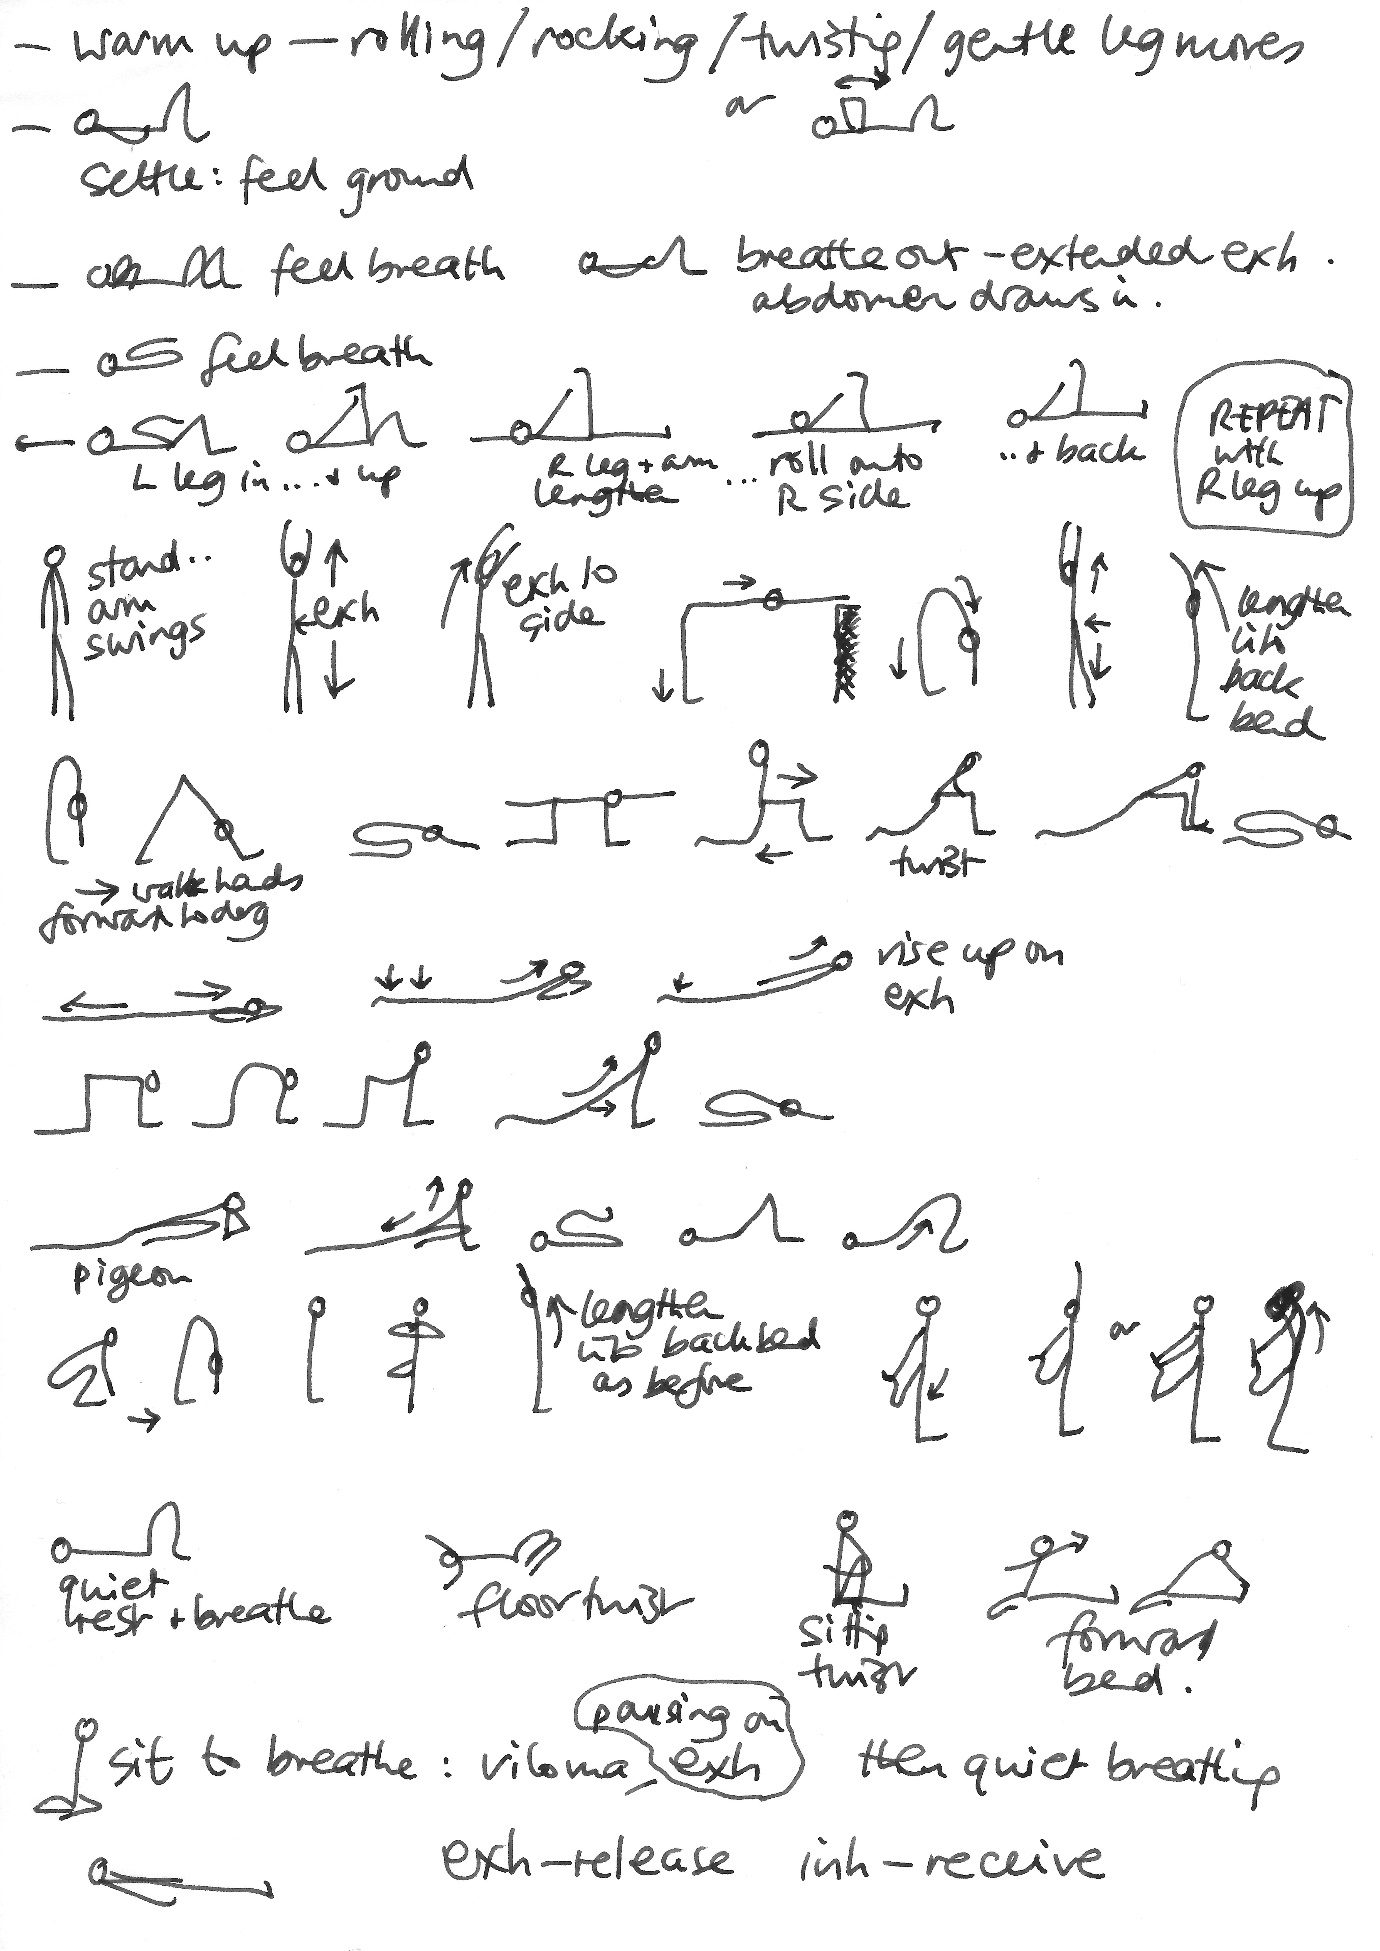 - warm up - rolling / rocking / twisting / gentle leg moves
- or
settle: feel ground
- feel breath
breathe out - extended exh.
abdomen draws in.
- feel breath
L leg in .... + up
R leg + arm
lengthen
... roll onto
R side
.. + back
REPEAT
with
R leg up
stand..
arm
swings
exh
exh to
side
lengthen
into
back
bend
→ walk hands
forward to dog
twist
rise up on
exh
pigeon
lengthen
into back bend
as before
or
quiet
rest + breathe
floor twist
sitting
twist
forward
bend.
sit to breathe: viloma
pausing on
exh
then quiet breathing
exh - release inh - receive